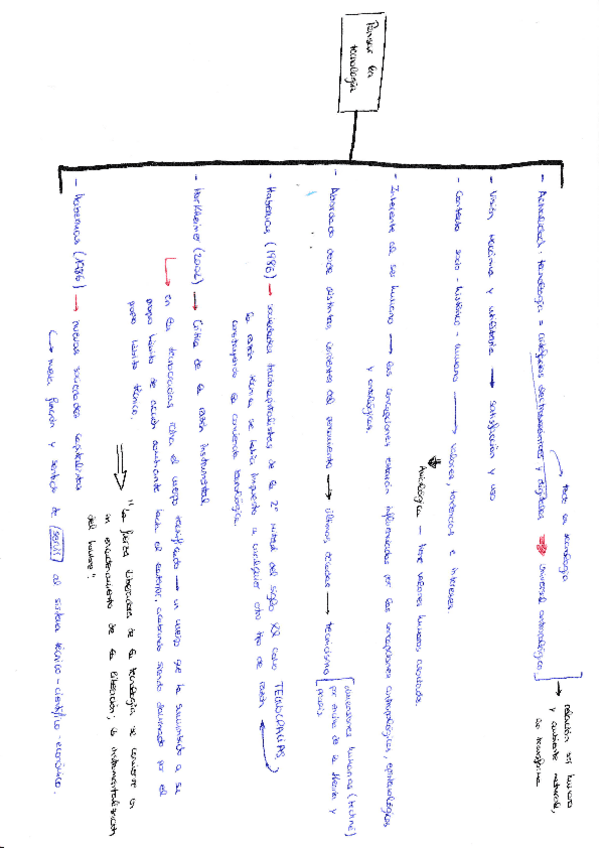 Pensar la
tecnología
- Actualidad: tecnología = artefactos electromecánicos y digitales → universal antropológico
→ todo es tecnología
→ relación ser humano
y ambiente natural,
se transforma
- Visión técnica y utilitaria → satisfacción y uso
- Contexto socio-histórico-humano → valores, tendencias e intereses.
Axiológica - tiene valores humanos
- Inherente al ser humano → las concepciones estarán influenciadas por las concepciones antropológicas, epistemológicas
y ontológicas.
- Abordado desde distintas corrientes del pensamiento → últimas décadas → tecnicismo
dimensiones humanas (techné)
por encima de la theoria y
praxis
- Habermas (1986) → sociedades tardocapitalistas de la 2ª mitad del siglo XX como TECNOCRACIAS
la razón técnica se había impuesto a cualquier otro tipo de razón
construyendo la conciencia tecnológica.
- Horkheimer (2002) → Crítica de la razón instrumental
→ en las tecnocracias reina el cuerpo → un cuerpo que ha sucumbido a su
propio hábito de acción dominante hacia el exterior, acabando siendo dominado por el
puro hábito técnico.
⇒ "la fuerza liberadora de la tecnología se convierte en
un encadenamiento de la liberación; la instrumentalización
del hombre".
- Habermas (1986) → nuevas sociedades capitalistas
→ nueva función y sentido de al sistema técnico-científico-económico.